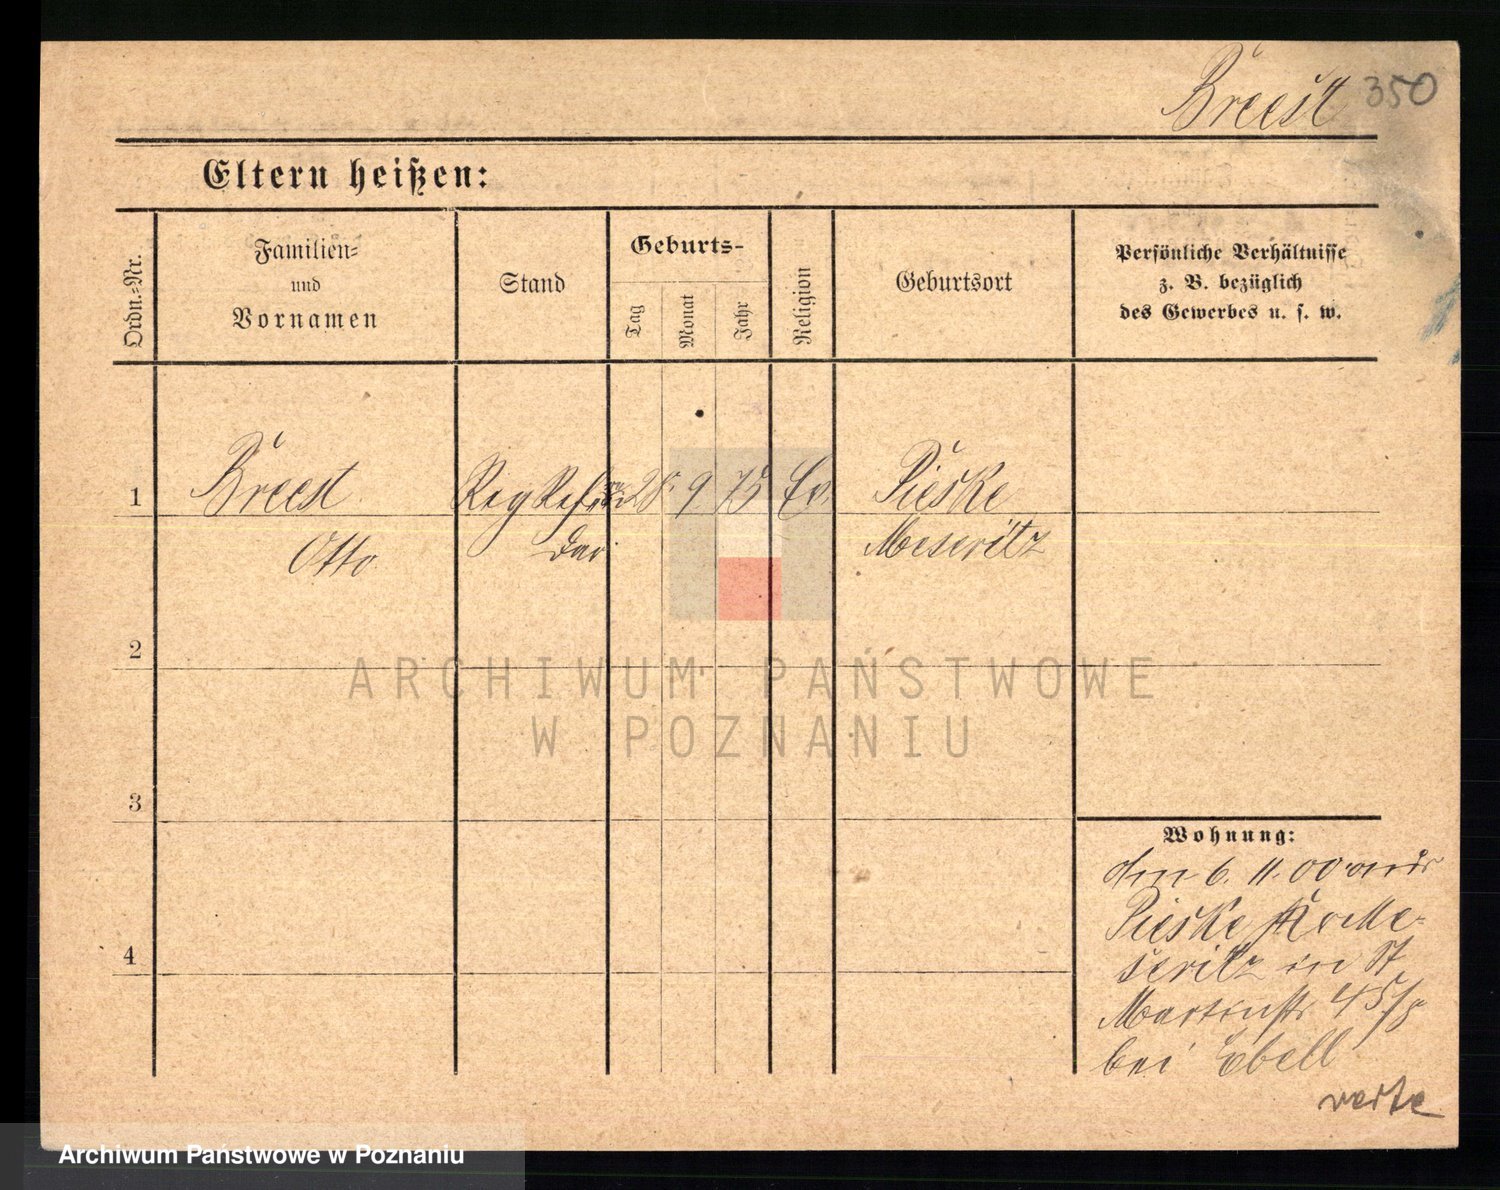 Breest 350
Eltern heißen:
Ordn.-Nr.
Familien-
und
Vornamen
Stand
Geburts-
Tag
Monat
Jahr
Religion
Geburtsort
Persönliche Verhältnisse
z. B. bezüglich
des Gewerbes u. s. w.
1 Breest Reg Refren 28. 9 75 Ev. Pieske
Otto dar Meseritz
2
3
4
Wohnung:
Am 6. 11. 00 aus
Pieske Kr Me-
seritz in St
Martinstr 45/8
bei Ebell
verte
ARCHIWUM PAŃSTWOWE
W POZNANIU
Archiwum Państwowe w Poznaniu